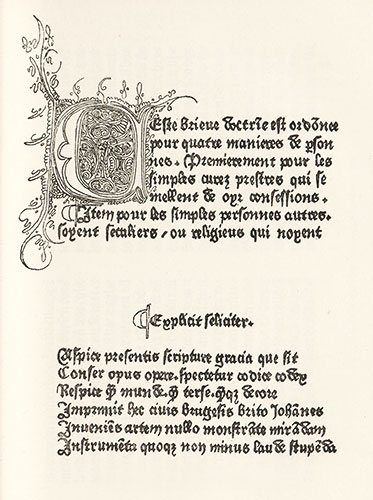 Ceste brieve doctrie est ordonee
pour quatre manieres de pson
nes. Premierement pour les
simples curez prestres qui se
mellent de oyr confessions.
Item pour les simples personnes autres.
soyent seculiers, ou religieus qui noyent
Explicit feliciter.
Aspice presentis scripture gracia que sit
Confer opus opere. spectetur codice codex
Respice qm munde. qm terse. qmqz decore
Imprimit hec civis brugesis brito Iohānes
Inveniēs artem nullo monstrāte mirādam
Instrumēta quoqz non minus laude stupēda